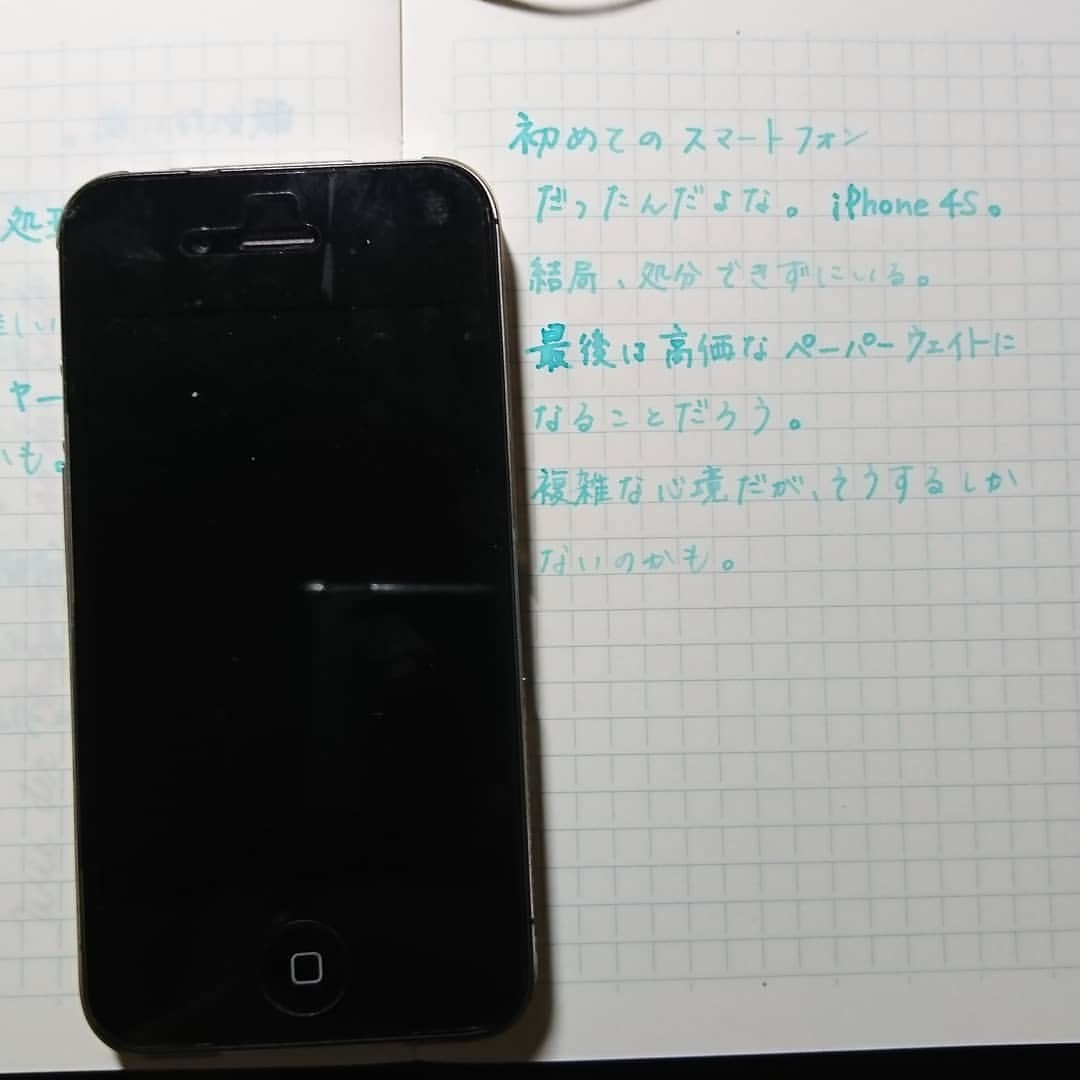 初めてのスマートフォン
だったんだよな。iPhone 4S。
結局、処分できずにいる。
最後は高価なペーパーウェイトに
なることだろう。
複雑な心境だが、そうするしか
ないのかも。